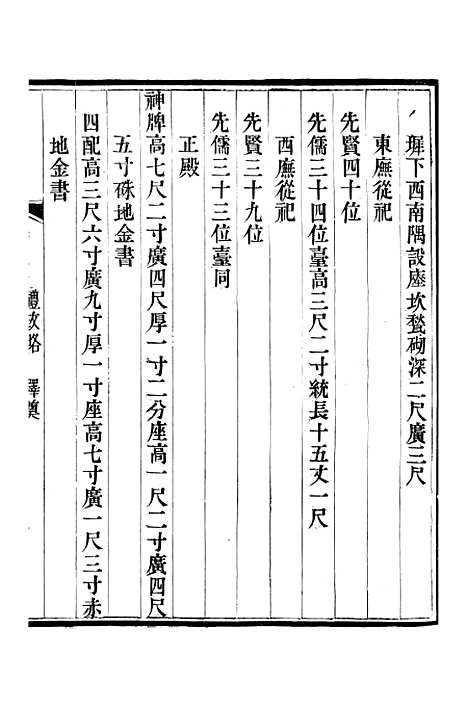 墀下西南隅設座坎甃砌深二尺廣三尺
東廡從祀
先賢四十位
先儒三十四位臺高三尺二寸統長十五丈一尺
西廡從祀
先賢三十九位
先儒三十三位臺同
正殿
神牌高七尺二寸廣四尺厚一寸二分座高一尺二寸廣四尺
五寸硃地金書
四配高三尺六寸廣九寸厚一寸座高七寸廣一尺三寸赤
地金書
釋奠